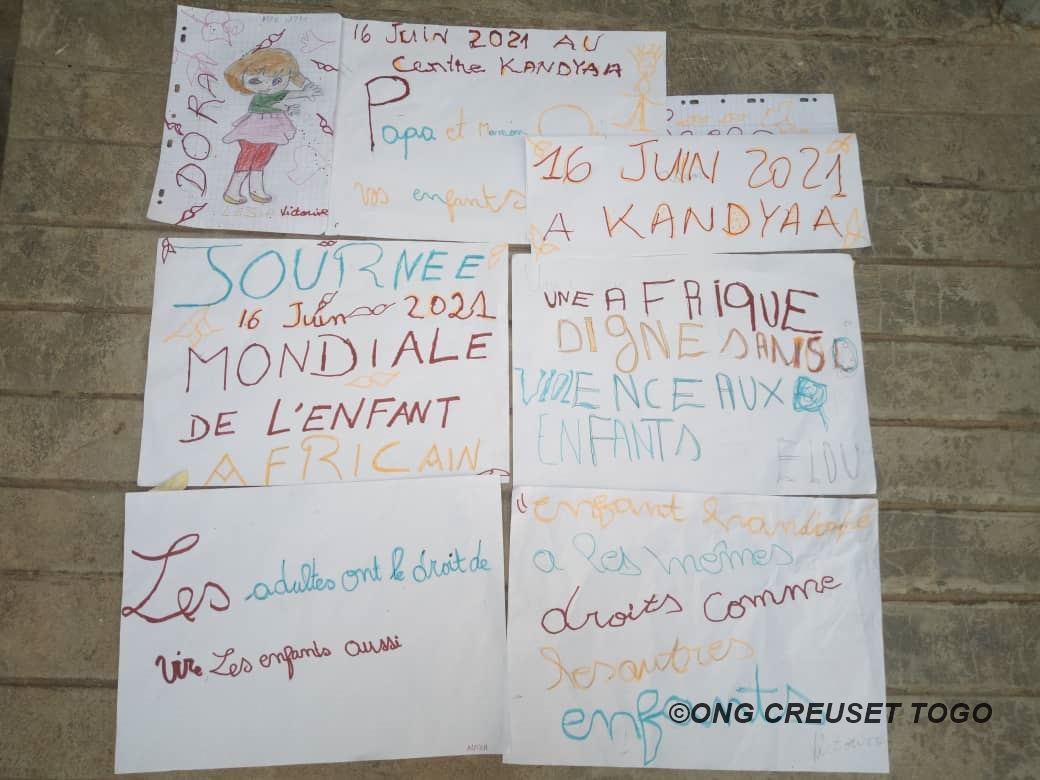 DORA
Victorine
16 JUIN 2021 AU
Centre KANDYAA
Papa et Maman
vos enfants
16 JUIN 2021
A KANDYAA
JOURNEE
16 Juin 2021
MONDIALE
DE L'ENFANT
AFRICAIN
UNE AFRIQUE
DIGNE SANS
ENCE AUX
ENFANTS
ELOU
Les adultes ont le droit de
vivre Les enfants aussi
enfant handicapé
a les mêmes
droits comme
les autres
enfants
©ONG CREUSET TOGO